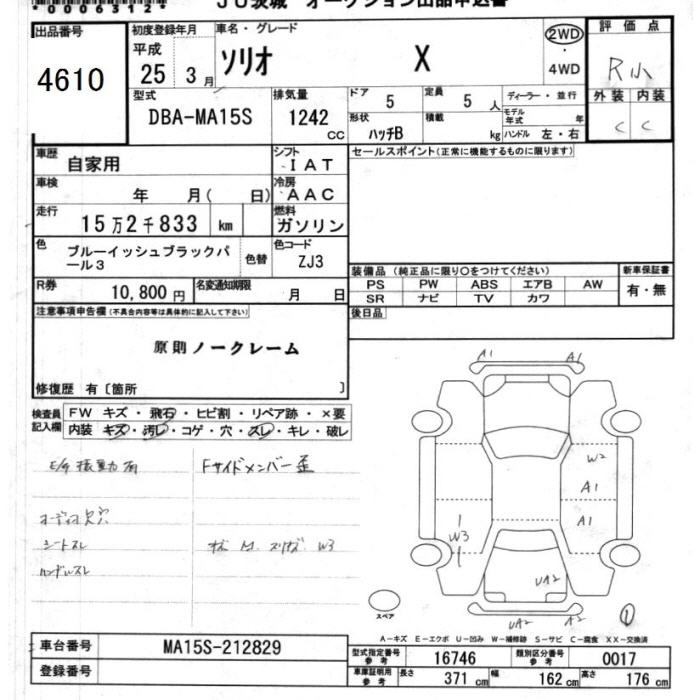 *0006312*
JU茨城 オークション出品申込書
出品番号
4610
初度登録年月
平成
25 3月
車名・グレード
ソリオ X
2WD
・
4WD
評価点
R小
外装 内装
C C
型式
DBA-MA15S
排気量
1242
CC
ドア 5
定員 5 人
ディーラー・並行
形状 ハッチB
積載 kg
モデル年式 年
ハンドル 左・右
車歴 自家用
シフト
IAT
セールスポイント(正常に機能するものに限ります)
車検 年 月( 日)
冷房
AAC
走行 15万2千833 km
燃料
ガソリン
色 ブルーイッシュブラックパール3
色替
色コード
ZJ3
R券 10,800円
名変通知期限 月 日
装備品(純正品に限り○をつけてください)
PS PW ABS エアB AW
SR ナビ TV カワ
新車保証書
有・無
後日品
注意事項申告欄(不具合内容等は具体的に記入して下さい)
原則ノークレーム
修復歴 有〔箇所 〕
検査員記入欄
FW キズ・飛石・ヒビ割・リペア跡・×要
内装 キズ・汚レ・コゲ・穴・スレ・キレ・破レ
E/G 振動有
Fサイドメンバー歪
オーディオ欠穴
シートスレ
ハンドルスレ
W3
A1 A1
W2
A1
A1
W3
UA2
UA2 A2
スペア
①
A-キズ E-エクボ U-凹み W-補修跡 S-サビ C-腐食 XX-交換済
車台番号 MA15S-212829
登録番号
型式指定番号参考 16746
類別区分番号参考 0017
車庫証明用参考 長さ 371 cm 幅 162 cm 高さ 176 cm